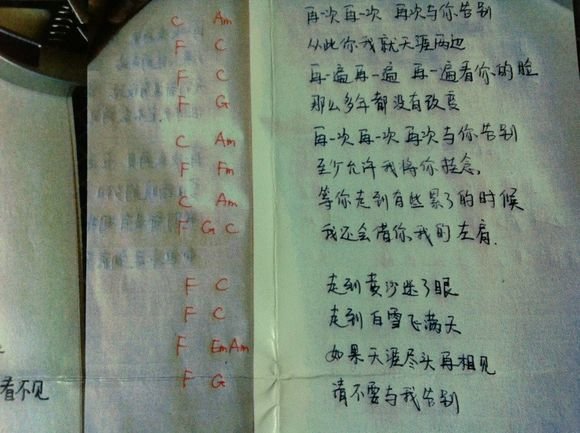 C Am 再一次再一次 再次与你告别
F C 从此你我就天涯两边
F C 再一遍再一遍 再一遍看你的脸
F G 那么多年都没有改变
C Am 再一次再一次 再次与你告别
F Fm 至少允许我将你挂念,
C Am 等你走到有些累了的时候
F G C 我还会借你我的左肩.
F C 走到黄沙迷了眼
F C 走到白雪飞满天
F Em Am 如果天涯尽头再相见
F G 请不要与我告别
看不见